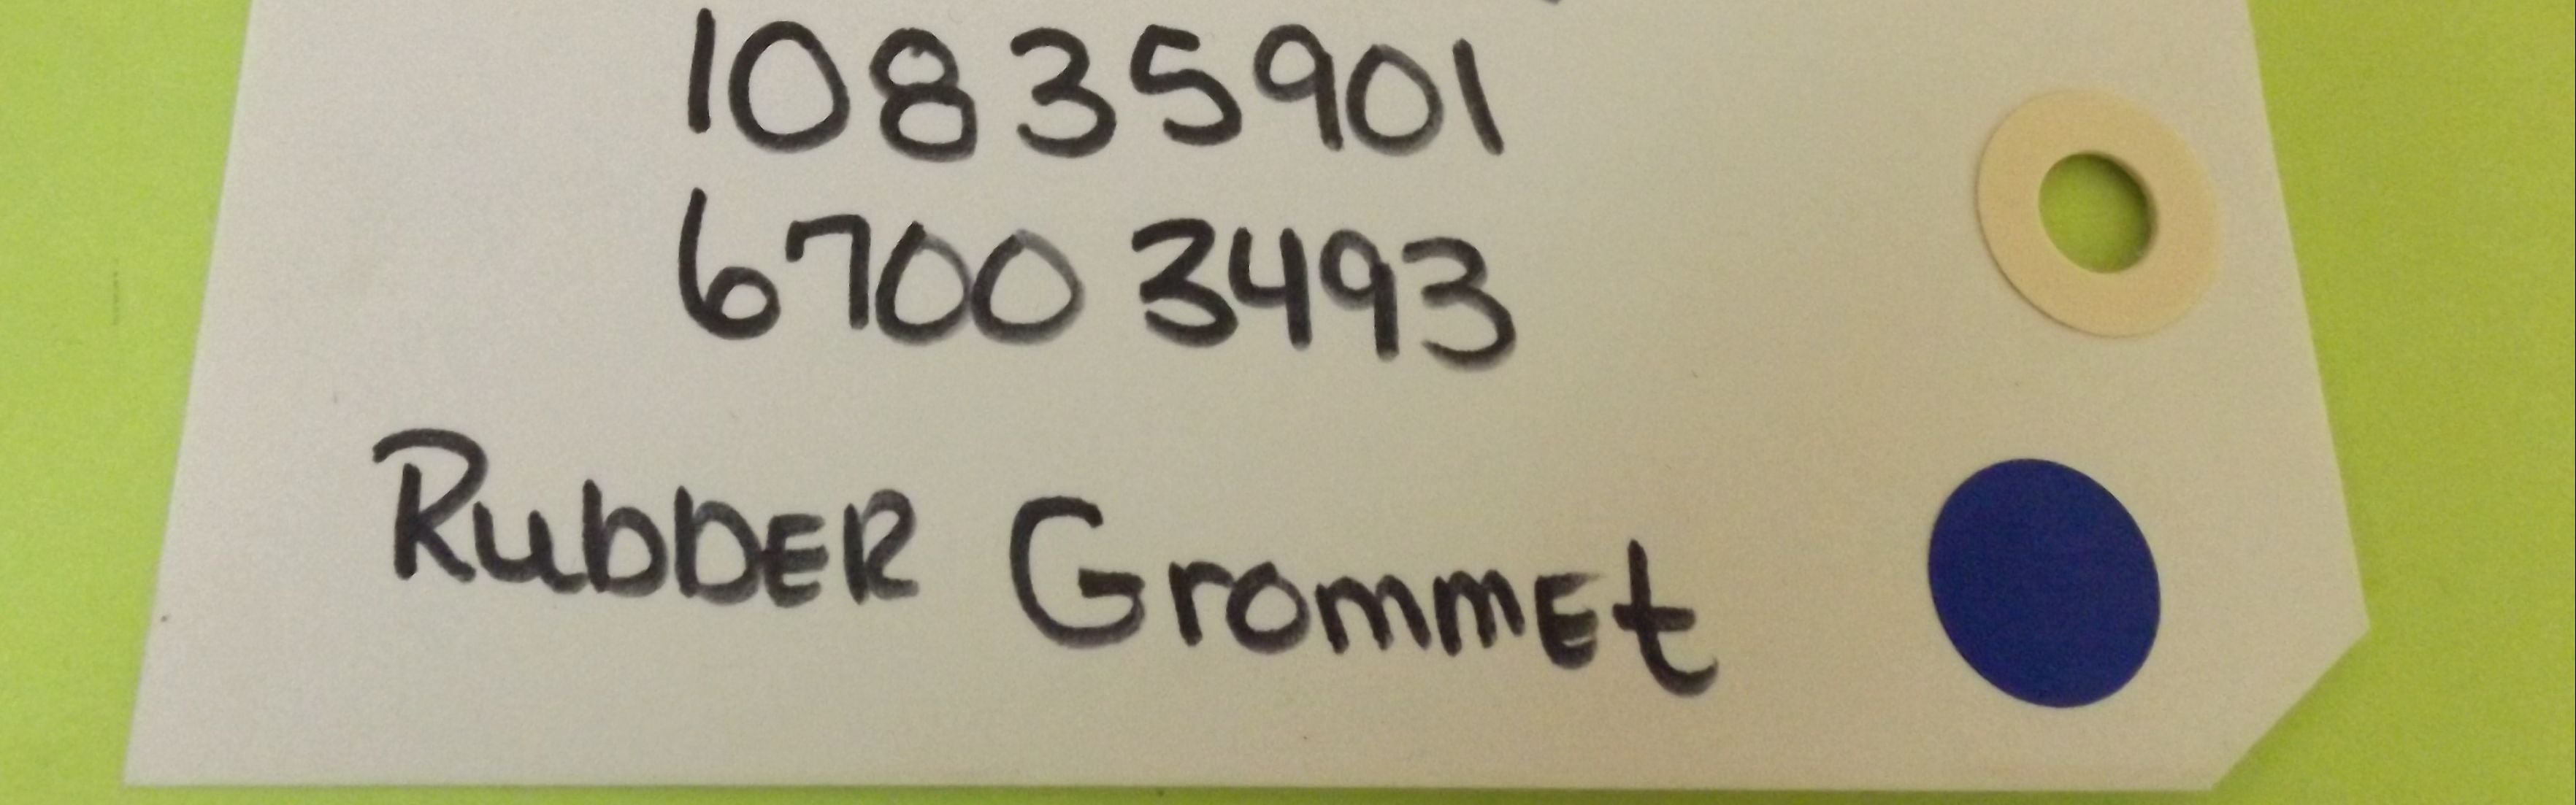 10835901
6700 3493
RubbER GrommEt